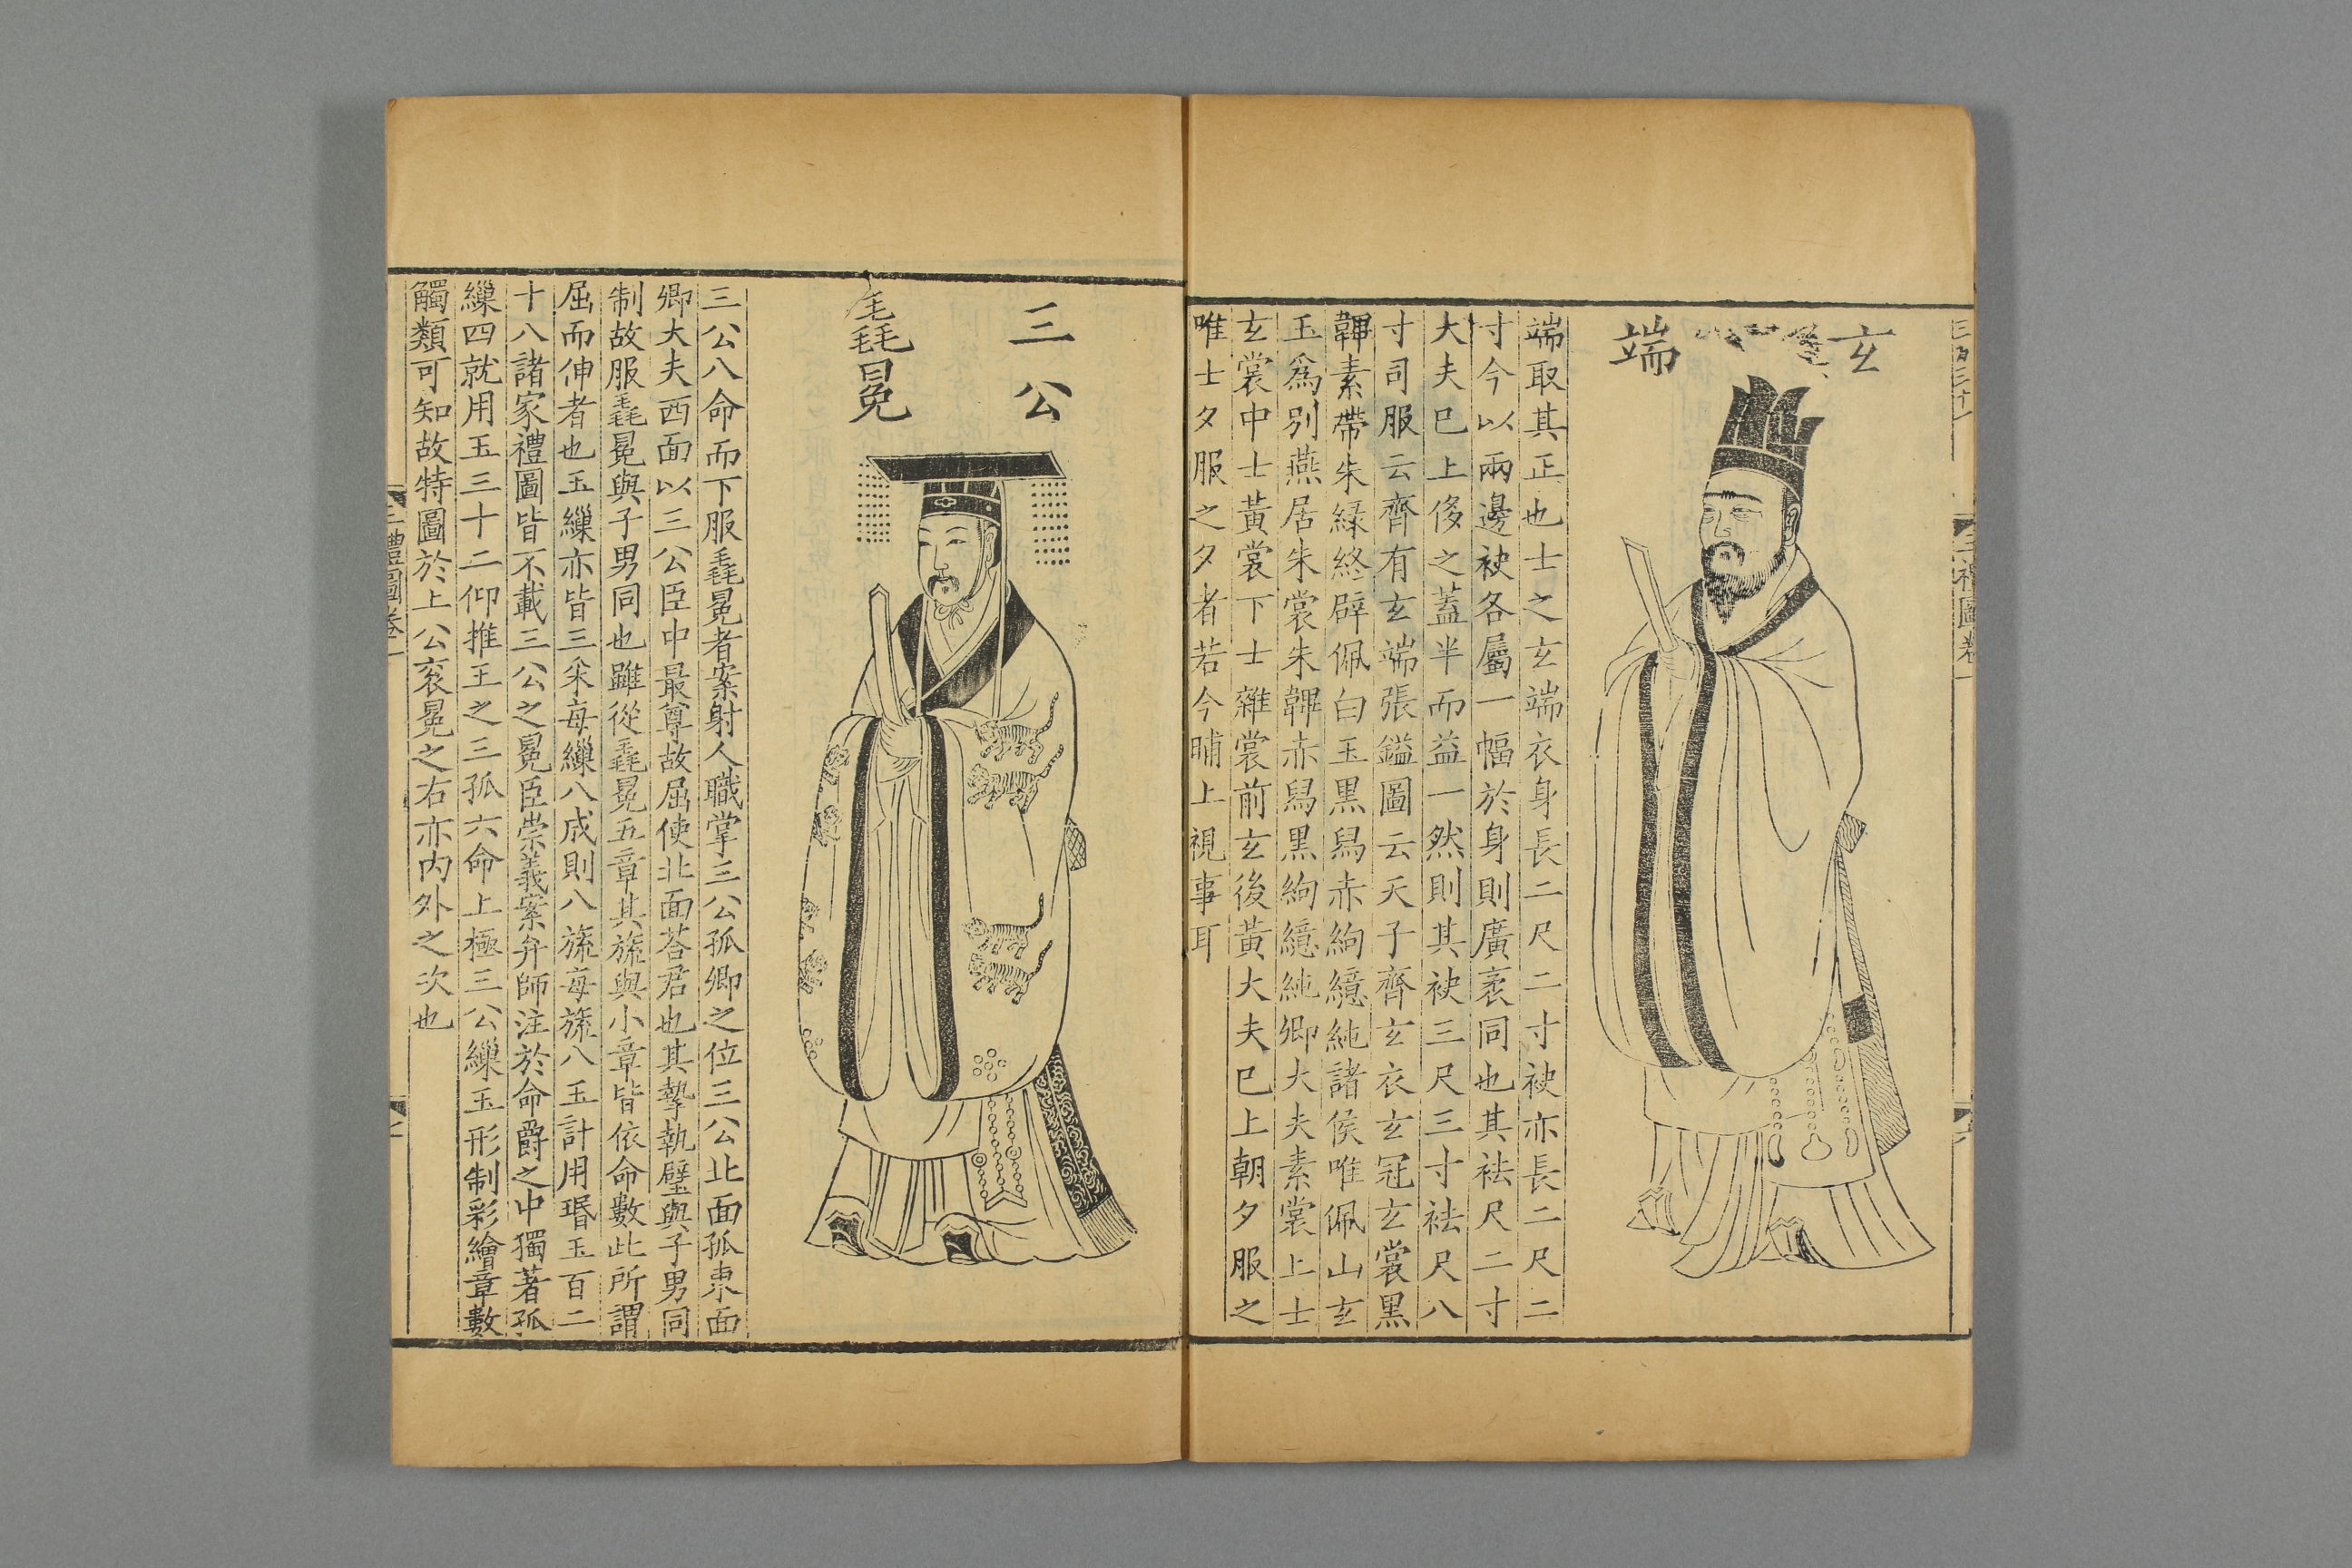 玄端
端取其正也士之玄端衣身長二尺二寸袂亦長二尺二
寸今以兩邊袂各屬一幅於身則廣袤同也其袪尺二寸
大夫巳上侈之蓋半而益一然則其袂三尺三寸袪尺八
寸司服云齊有玄端張鎰圖云天子齊玄衣玄冠玄裳黑
韠素帶朱緑終辟佩白玉黑舄赤絇繶純諸侯唯佩山玄
玉爲别燕居朱裳朱韠赤舄黑絇繶純卿大夫素裳上士
玄裳中士黃裳下士雜裳前玄後黃大夫巳上朝夕服之
唯士夕服之夕者若今晡上視事耳
三公
毳冕
三公八命而下服毳冕者案射人職掌三公孤卿之位三公北面孤東面
卿大夫西面以三公臣中最尊故屈使北面荅君也其摯執璧與子男同
制故服毳冕與子男同也雖從毳冕五章其旒與小章皆依命數此所謂
屈而伸者也玉繅亦皆三采每繅八成則八旒每旒八玉計用瑉玉百二
十八諸家禮圖皆不載三公之冕臣崇義案弁師注於命爵之中獨著孤
繅四就用玉三十二仰推王之三孤六命上極三公繅玉形制彩繪章數
觸類可知故特圖於上公衮冕之右亦内外之次也
三禮圖卷一